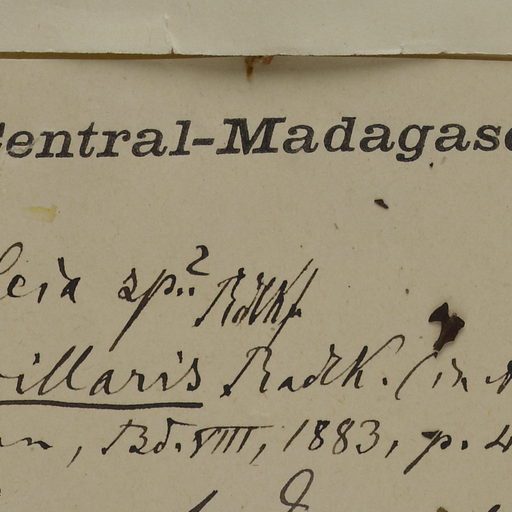 Central-Madagasc
sp.? Rdlkf.
villaris Radlk. (in
Bd. VIII, 1883, p. 4